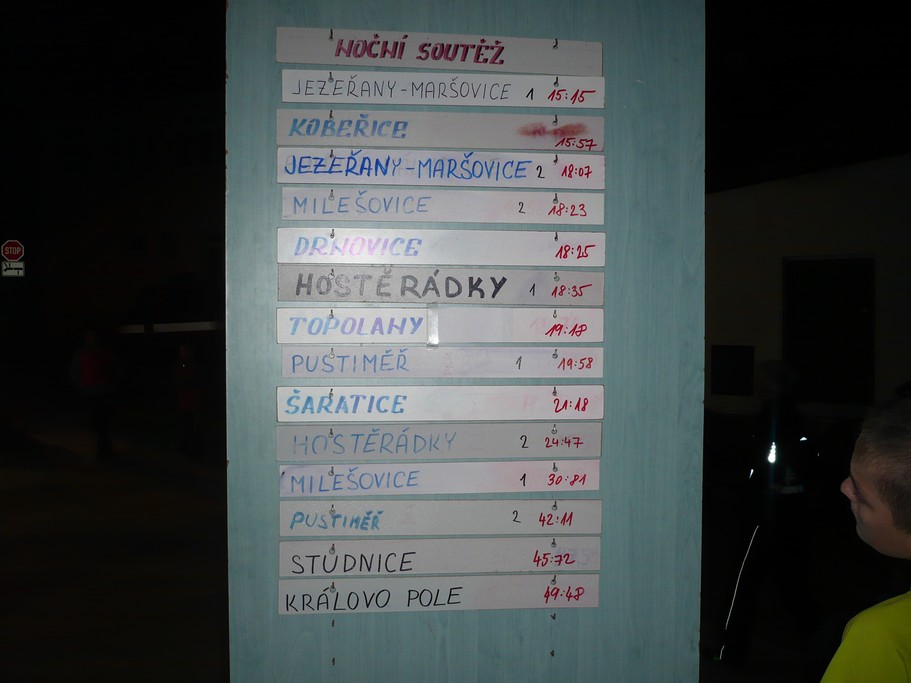 NOČNÍ SOUTĚŽ
JEZEŘANY-MARŠOVICE 1 15:15
KOBEŘICE 15:57
JEZEŘANY-MARŠOVICE 2 18:07
MILEŠOVICE 2 18:23
DRNOVICE 18:25
HOSTĚRÁDKY 1 18:35
TOPOLANY 19:18
PUSTIMĚŘ 1 19:58
ŠARATICE 21:18
HOSTĚRÁDKY 2 24:47
MILEŠOVICE 1 30:81
PUSTIMĚŘ 2 42:11
STUDNICE 45:72
KRÁLOVO POLE 49:48
STOP